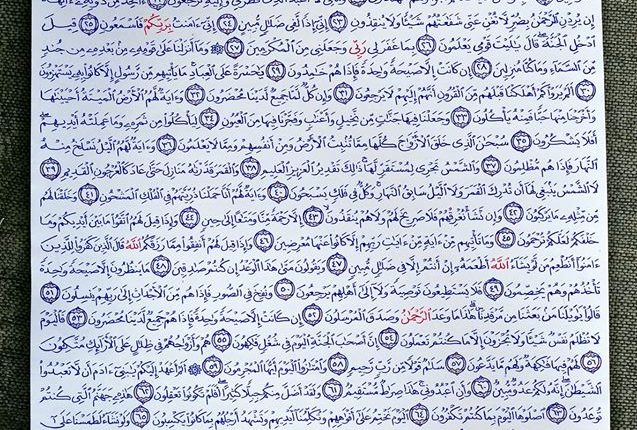 إن يردن الرحمن بضر لا تغن عني شفعتهم شيئا ولا ينقذون ٢٣ إني إذا لفي ضلل مبين ٢٤ إني ءامنت بربكم فاسمعون ٢٥ قيل
ادخل الجنة قال يليت قومي يعلمون ٢٦ بما غفر لي ربي وجعلني من المكرمين ٢٧ وما أنزلنا على قومه من بعده من جند
من السماء وما كنا منزلين ٢٨ إن كانت إلا صيحة وحدة فإذا هم خمدون ٢٩ يحسرة على العباد ما يأتيهم من رسول إلا كانوا به يستهزءون
٣٠ ألم يروا كم أهلكنا قبلهم من القرون أنهم إليهم لا يرجعون ٣١ وإن كل لما جميع لدينا محضرون ٣٢ وءاية لهم الأرض الميتة أحيينها
وأخرجنا منها حبا فمنه يأكلون ٣٣ وجعلنا فيها جنت من نخيل وأعنب وفجرنا فيها من العيون ٣٤ ليأكلوا من ثمره وما عملته أيديهم
أفلا يشكرون ٣٥ سبحن الذي خلق الأزوج كلها مما تنبت الأرض ومن أنفسهم ومما لا يعلمون ٣٦ وءاية لهم اليل نسلخ منه
النهار فإذا هم مظلمون ٣٧ والشمس تجري لمستقر لها ذلك تقدير العزيز العليم ٣٨ والقمر قدرنه منازل حتى عاد كالعرجون القديم ٣٩
لا الشمس ينبغي لها أن تدرك القمر ولا اليل سابق النهار وكل في فلك يسبحون ٤٠ وءاية لهم أنا حملنا ذريتهم في الفلك المشحون ٤١ وخلقنا لهم
من مثله ما يركبون ٤٢ وإن نشأ نغرقهم فلا صريخ لهم ولا هم ينقذون ٤٣ إلا رحمة منا ومتعا إلى حين ٤٤ وإذا قيل لهم اتقوا ما بين أيديكم وما
خلفكم لعلكم ترحمون ٤٥ وما تأتيهم من ءاية من ءايت ربهم إلا كانوا عنها معرضين ٤٦ وإذا قيل لهم أنفقوا مما رزقكم الله قال الذين كفروا للذين
ءامنوا أنطعم من لو يشاء الله أطعمه إن أنتم إلا في ضلل مبين ٤٧ ويقولون متى هذا الوعد إن كنتم صدقين ٤٨ ما ينظرون إلا صيحة وحدة
تأخذهم وهم يخصمون ٤٩ فلا يستطيعون توصية ولا إلى أهلهم يرجعون ٥٠ ونفخ في الصور فإذا هم من الأجداث إلى ربهم ينسلون ٥١
قالوا يويلنا من بعثنا من مرقدنا هذا ما وعد الرحمن وصدق المرسلون ٥٢ إن كانت إلا صيحة وحدة فإذا هم جميع لدينا محضرون ٥٣ فاليوم
لا تظلم نفس شيئا ولا تجزون إلا ما كنتم تعملون ٥٤ إن أصحب الجنة اليوم في شغل فكهون ٥٥ هم وأزوجهم في ظلل على الأرائك متكءون
٥٦ لهم فيها فكهة ولهم ما يدعون ٥٧ سلم قولا من رب رحيم ٥٨ وامتزوا اليوم أيها المجرمون ٥٩ ألم أعهد إليكم يبني ءادم أن لا تعبدوا
الشيطن إنه لكم عدو مبين ٦٠ وأن اعبدوني هذا صرط مستقيم ٦١ ولقد أضل منكم جبلا كثيرا أفلم تكونوا تعقلون ٦٢ هذه جهنم التي كنتم
توعدون ٦٣ اصلوها اليوم بما كنتم تكفرون ٦٤ اليوم نختم على أفوههم وتكلمنا أيديهم وتشهد أرجلهم بما كانوا يكسبون ٦٥ ولو نشاء لطمسنا على